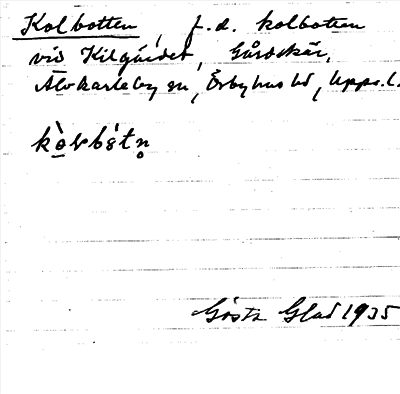 Kolbotten, f.d. kolbotten
vid Kilgärdet, Gårdskär,
Älvkarleby sn, Örbyhus hd, Upps. l.
Gösta Glad 1935